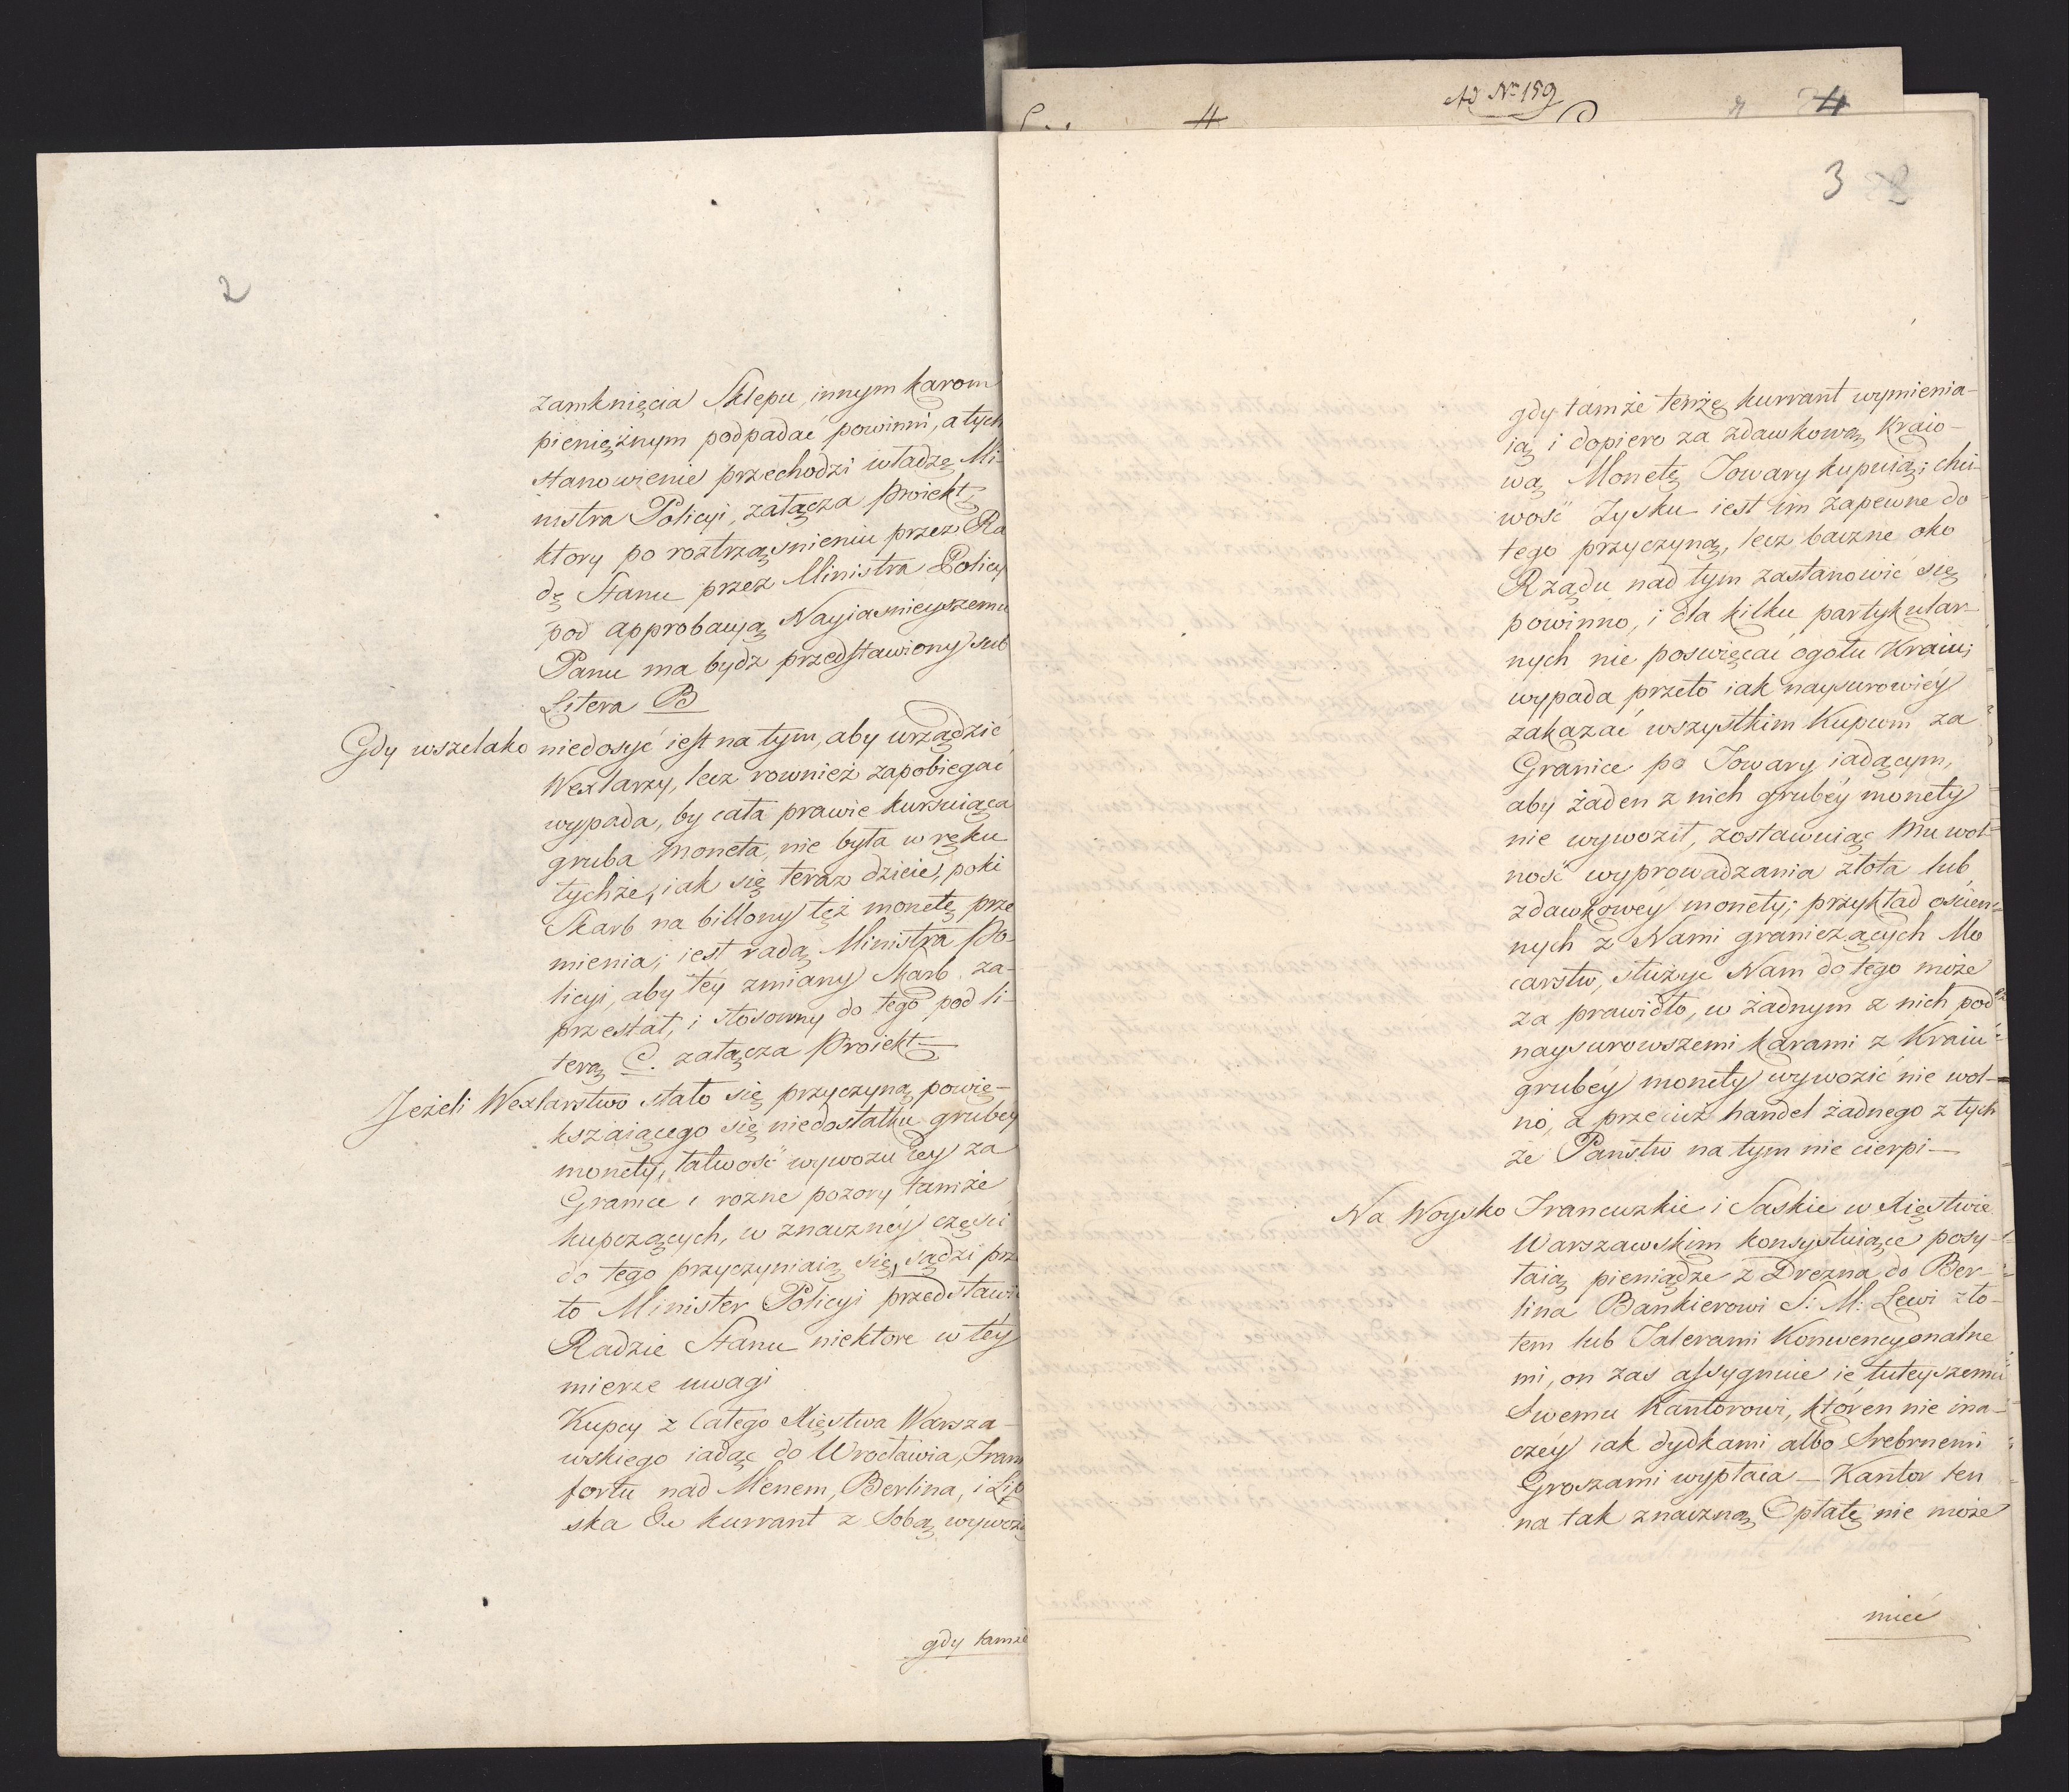 2
zamknięcia Sklepu, innym karom
pieniężnym podpadać powinni, a tych
stanowienie przechodzi władzę Mi-
nistra Policyi, załącza proiekt,
ktory po roztrząsnieniu przez Ra
dę Stanu przez Ministra Policy
pod approbacyą Nayiasnieyszemu
Panu ma bydz przedstawiony sub
Litera B
Gdy wszelako niedosyć iest na tym, aby urządzić
Wexlarzy, lecz rownież zapobiegać
wypada, by cała prawie kursuiąca
gruba moneta, nie była w ręku
tychże, iak się teraz dzieie, poki
Skarb na billony też monetę prze
mienia; iest radą Ministra Po-
licyi, aby téy zmiany Skarb za-
przestał, i stosowny do tego pod li-
terą C. załącza Proiekt —
Jeżeli Wexlarstwo stało się przyczyną powię-
kszaiącego się niedostatku grubey
monety, łatwość wywozu iey za
Granice i rozne pozory tamże
kupczących, w znaczney części
do tego przyczyniaią się, sądzi prze
to Minister Policyi przedstawić
Radzie Stanu niektore w téy
mierze uwagi
Kupcy z Całego Xięstwa Warsza-
wskiego iadąc do Wrocławia, Fran
fortu nad Menem, Berlina, i Lip
ska kurrant z Sobą wywożą
gdy tamże
Ad Nro 159
4
3
gdy tamże tenże kurrant wymienia-
ią i dopiero za zdawkową Kraio-
wą Monetę Towary kupuią; chci-
wość Zysku iest im zapewne do
tego przyczyną, lecz baczne oko
Rządu nad tym zastanowić się
powinno, i dla kilku partykular-
nych nie poswięcać ogołu Kraiu;
wypada przeto iak naysurowiéy
zakazać wszystkim Kupcom za
Granice po Towary iadącym,
aby żaden z nich grubéy monety
nie wywoził, zostawuiąc Mu wol-
ność wyprowadzania złota lub
zdawkowéy monety; przykład oscien-
nych z Nami graniczących Mo
carstw, służyć Nam do tego może
za prawidło, w żadnym z nich pod
naysurowszemi karami z Kraiu
grubéy monety wywozić nie wol-
no, a przeciuż handel żadnego z tych
że Państw na tym nie cierpi —
Na Woysko Francuzkie i Saskie w Xięstwie
Warszawskim konsystuiące posy-
łaią pieniądze z Drezna do Ber-
lina Bankierowi S: M: Lewi zło-
tem lub Talerami Konwencyonalne
mi, on zas assygnuie ie tuteyszemu
Swemu Kantorowi, któren nie ina-
czéy iak dydkami albo Srebrnemi
Groszami wypłaca — Kantor ten
na tak znaczną Opłatę nie może
mieć